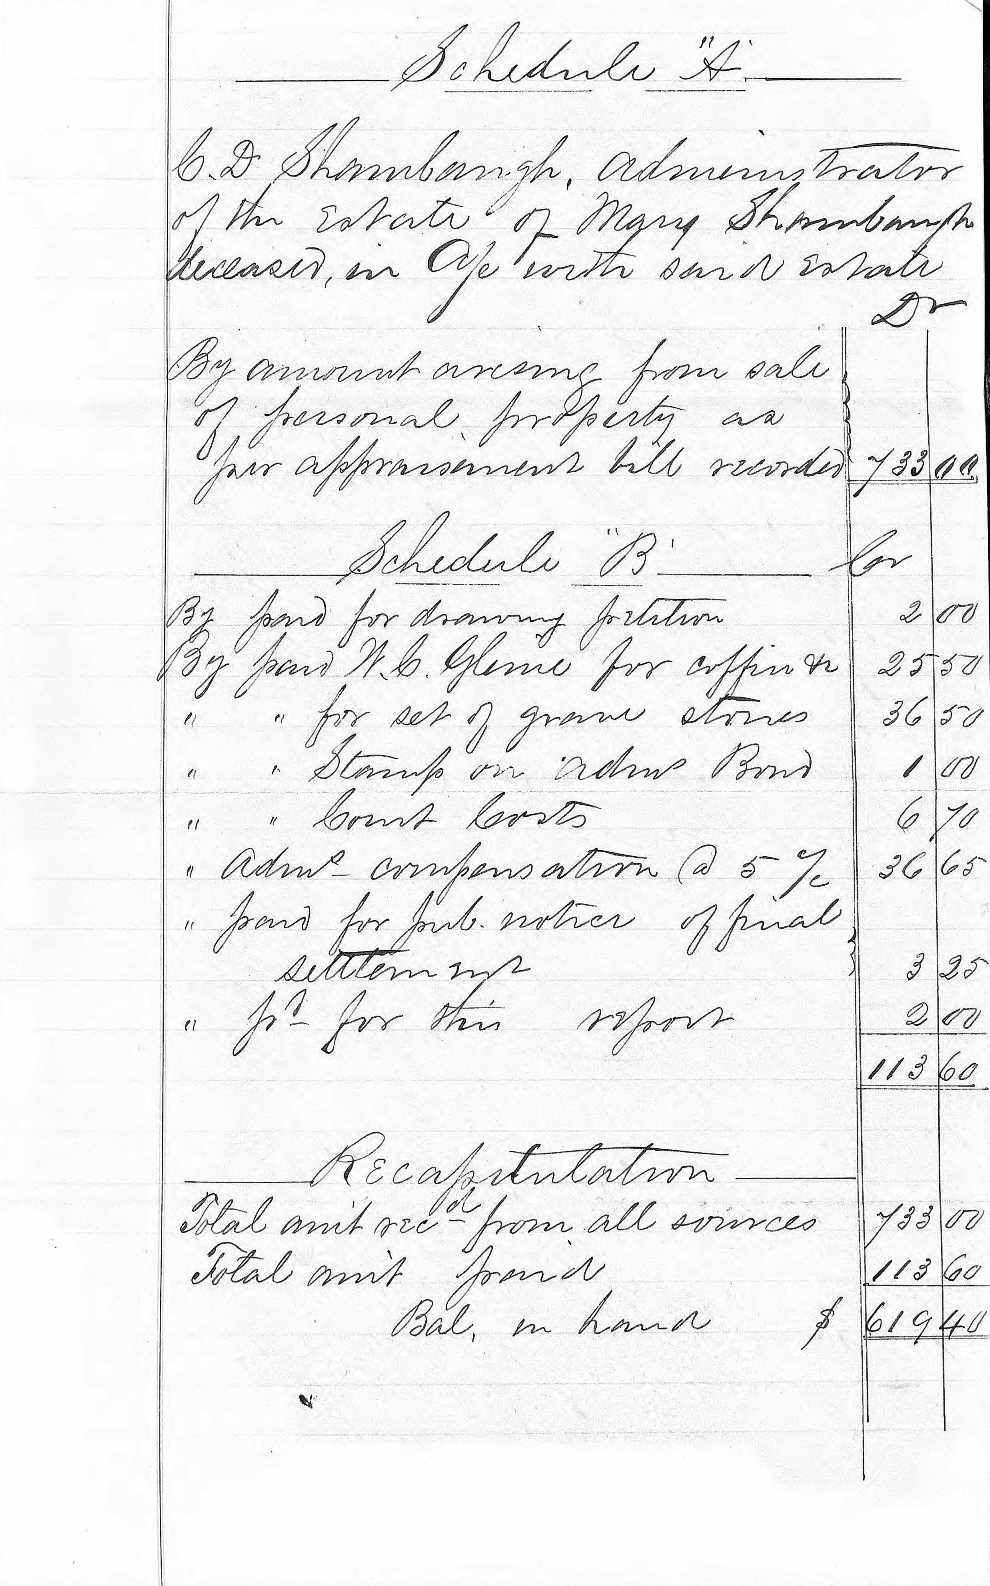 Schedule "A"
C. D. Shambaugh, Administrator
of the Estate of Mary Shambaugh
deceased, in A/c with said Estate
Dr
By amount arising from sale
of personal property as
per appraisement bill recorded 733 00
Schedule "B" Cr
By paid for drawing petition 2 00
By paid W. C. for coffin &c 25 50
" " for set of grave stones 36 50
" " Stamp on Adms Bond 1 00
" " Court Costs 6 70
" Adms compensation @ 5 % 36 65
" paid for pub. notice of final
settlement 3 25
" pd for this report 2 00
113 60
Recapitulation
Total amt recd from all sources 733 00
Total amt paid 113 60
Bal. in hand $ 619 40